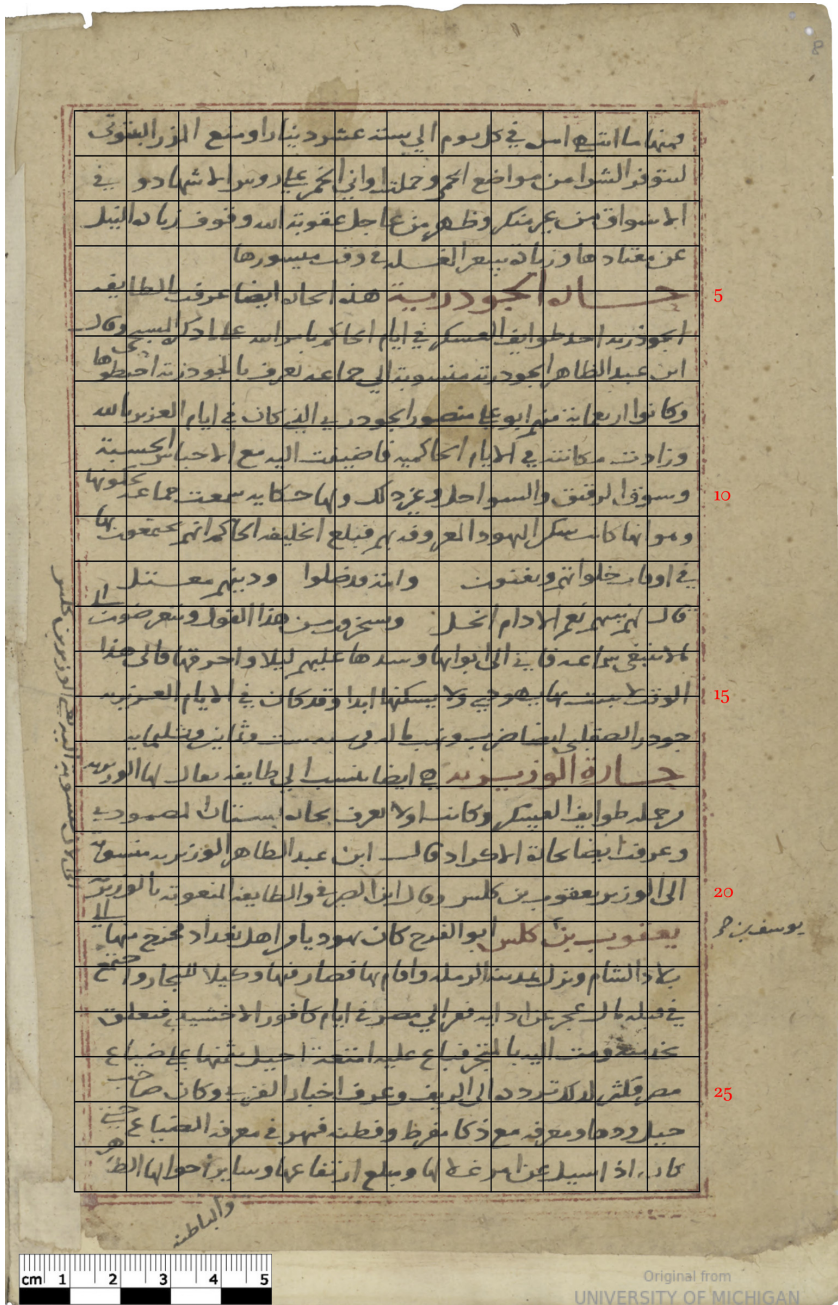 فمنها ما انتهى امره في كل يوم الى ستة عشر دينارا ومنع المزر البيوتي
لتوفر الشرا من مواضع الخمر وحملت اواني الخمر على روس الاشهاد و في
الاسواق من غير منكر وظهر من عاجل عقوبة الله وقوف زيادة النيل
عن معتادها وزيادة سعر الغلة في وقت ميسورها
حارة الجودرية هذه الحارة ايضا عرفت بالطايفة
الجودرية احد طوايف العسكر في ايام الحاكم بامر الله على ما ذكره المسبحي وقال
ابن عبد الظاهر الجودرية منسوبة الى جماعة تعرف بالجودرية اختطوها
وكانوا اربعماية منهم ابو علي منصور الجودري الذي كان في ايام العزيز بالله
وزادت مكانته في الايام الحاكمية فاضيفت اليه مع الاحباس الحسبة
وسوق الرقيق والسواحل وغير ذلك ولها حكاية سمعت جماعة يحكونها
وهو انها كانت سكن اليهود المعروفة بهم فبلغ الخليفة الحاكم انهم يجتمعون بها
في اوقات خلواتهم ويغنون وامة قد ضلوا ودينهم معتل
قال لهم نبيهم نعم الادام الخل ويسخرون من هذا القول ويتعرضون الى
ما لا ينبغي سماعه فاتى الى ابوابها وسدها عليهم ليلا واحرقها فالى هذا
الوقت لا يبيت بها يهودي ولا يسكنها ابدا وقد كان في الايام العزيزية
جودر الصقلبي ايضا ضرب ونهب ماله في سنة ست وثمانين وثلثماية
حارة الوزيرية هي ايضا تنسب الى طايفة يقال لها الوزيرية
من جملة طوايف العسكر وكانت اولا تعرف بحارة بستان المصمودي
وعرفت ايضا بحارة الاكراد قال ابن عبد الظاهر الوزيرية منسوبة
الى الوزير يعقوب بن كلس وقال ابن الصيرفي والطايفة المنعوتة بالوزيرية الى
يعقوب بن كلس ابو الفرج كان يهوديا من اهل بغداد فخرج منها الى
بلاد الشام ونزل بمدينة الرملة واقام بها فصار فيها وكيلا للتجار واجتمع
في قبله مال عجز عن ادايه ففر الى مصر في ايام كافور الاخشيدي فتعلق
بخدمته ومت اليه بالمتجر فباع عليه امتعة احيل بثمنها على ضياع
مصر فكثر لذلك تردده الى الريف وعرف اخبار القرى وكان صاحب
حيل ودها ومعرفة مع ذكا مفرط وفطنة فمهر في معرفة الضياع حتى
كان اذا سيل عن امر غلالها ومبلغ ارتفاعها وساير احوالها الظاهرة
والباطنة
يوسف بن
Original from
UNIVERSITY OF MICHIGAN
cm 1 2 3 4 5
5
10
15
20
25